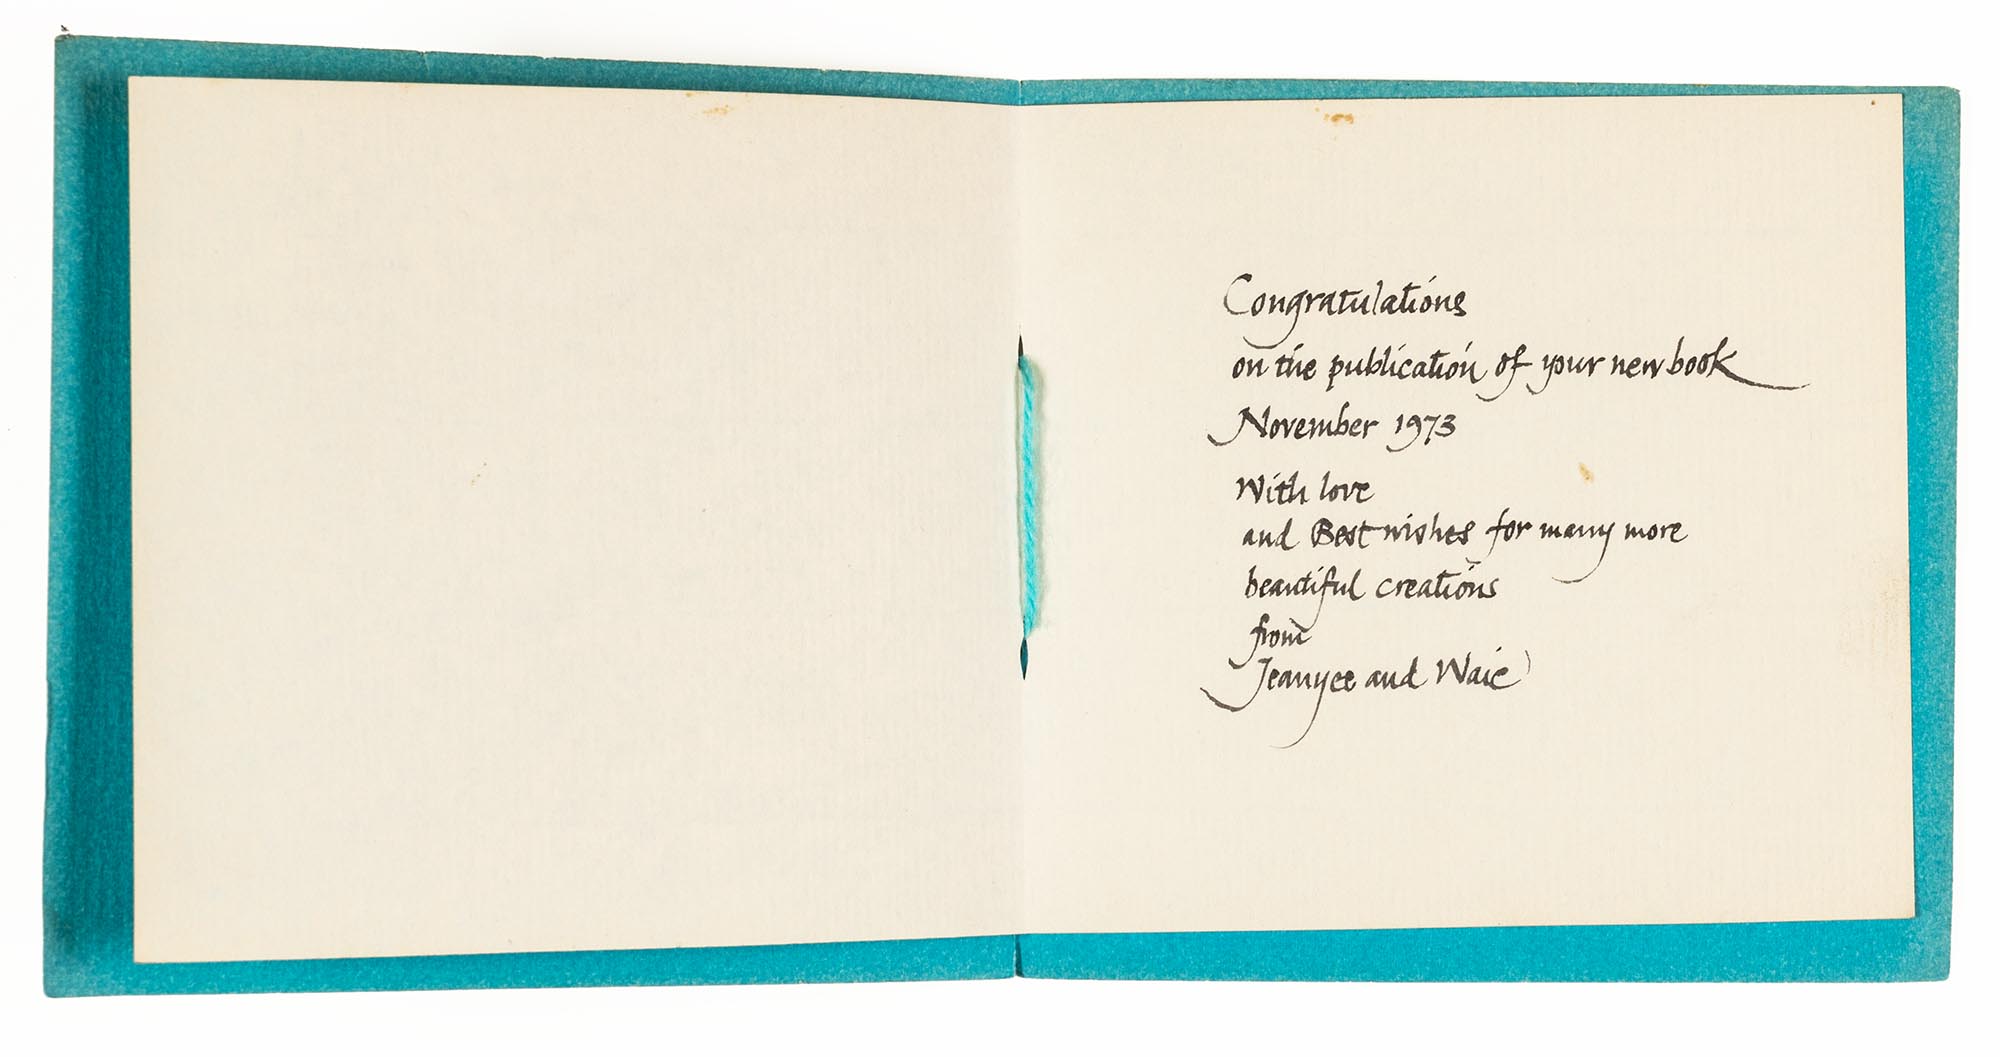 Congratulations
on the publication of your new book
November 1973
With love
and Best wishes for many more
beautiful creations
from
Jeanyee and Waie